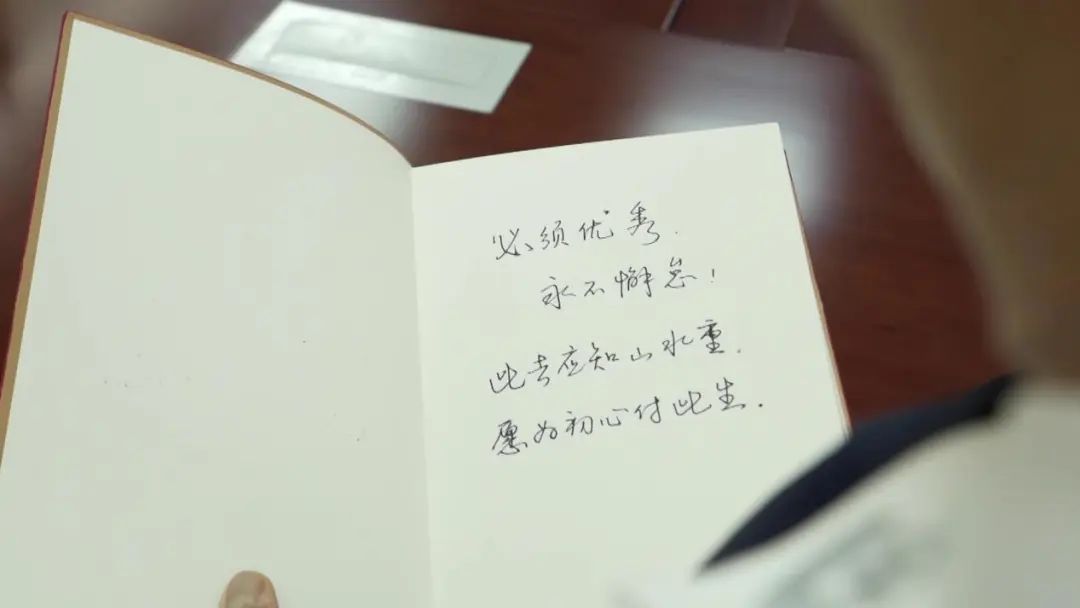 必须优秀.
永不懈怠!
此去应知山水重.
愿为初心付此生.